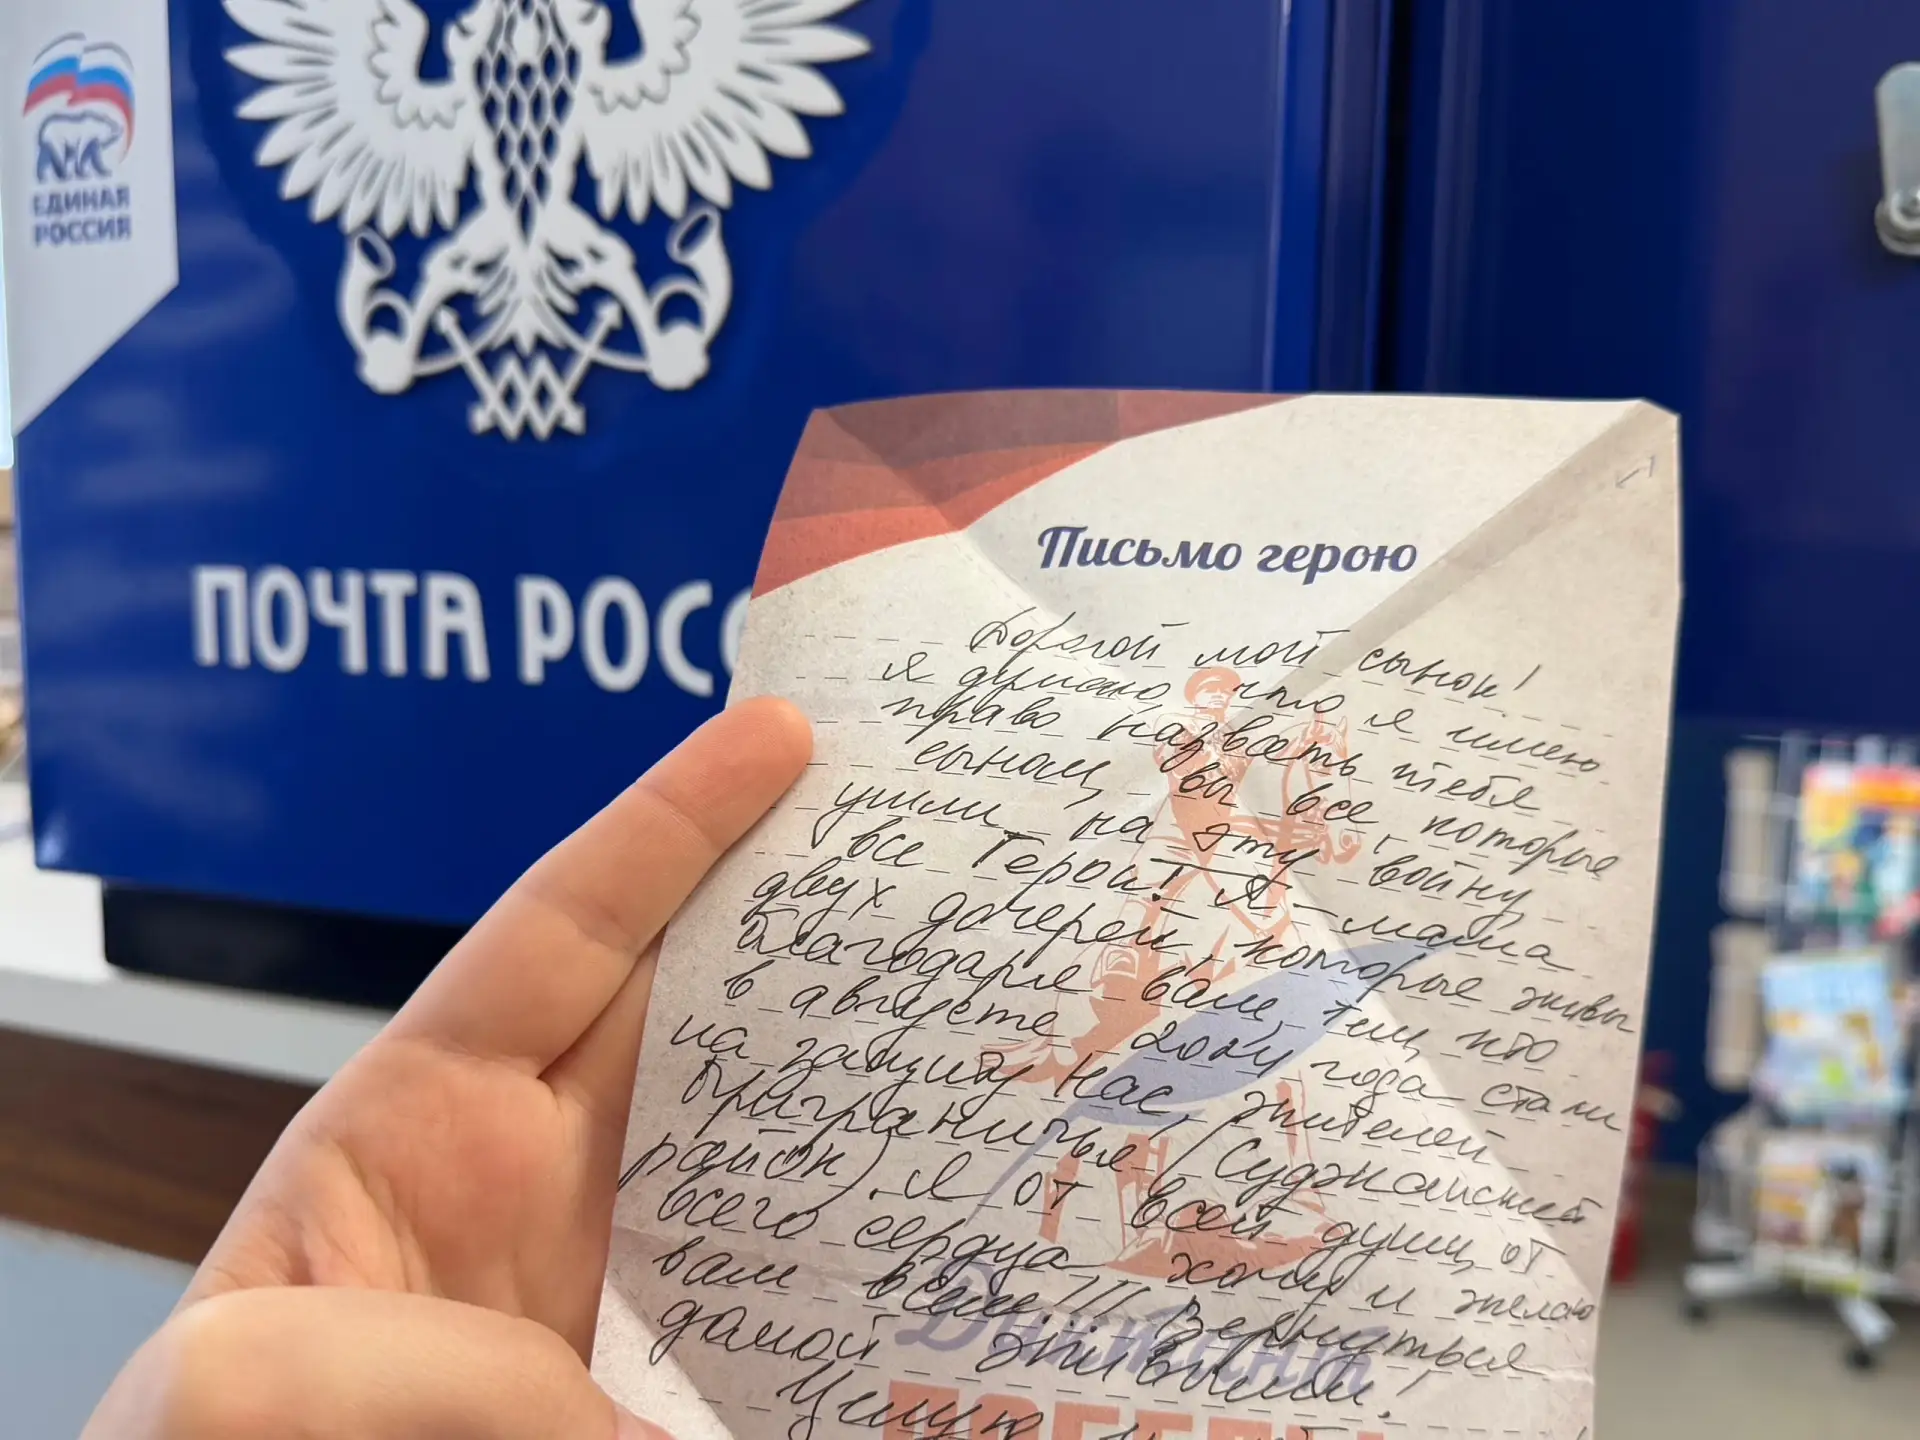 ЕДИНАЯ
РОССИЯ
ПОЧТА РОСС
Письмо герою
Дорогой мой сынок!
я думаю что я имею
право назвать тебя
сыном, вы все, которые
ушли на эту войну,
все Герои! Я - мама
двух дочерей, которые живы
благодаря вам, тем, кто
в августе 2024 года стали
на защиту нас, жителей
приграничья (Суджанский
район). Я от всей души, от
всего сердца хочу и желаю
вам всем!!! Вернуться
домой живыми!
Целую
Диктант
ПОБЕДЫ